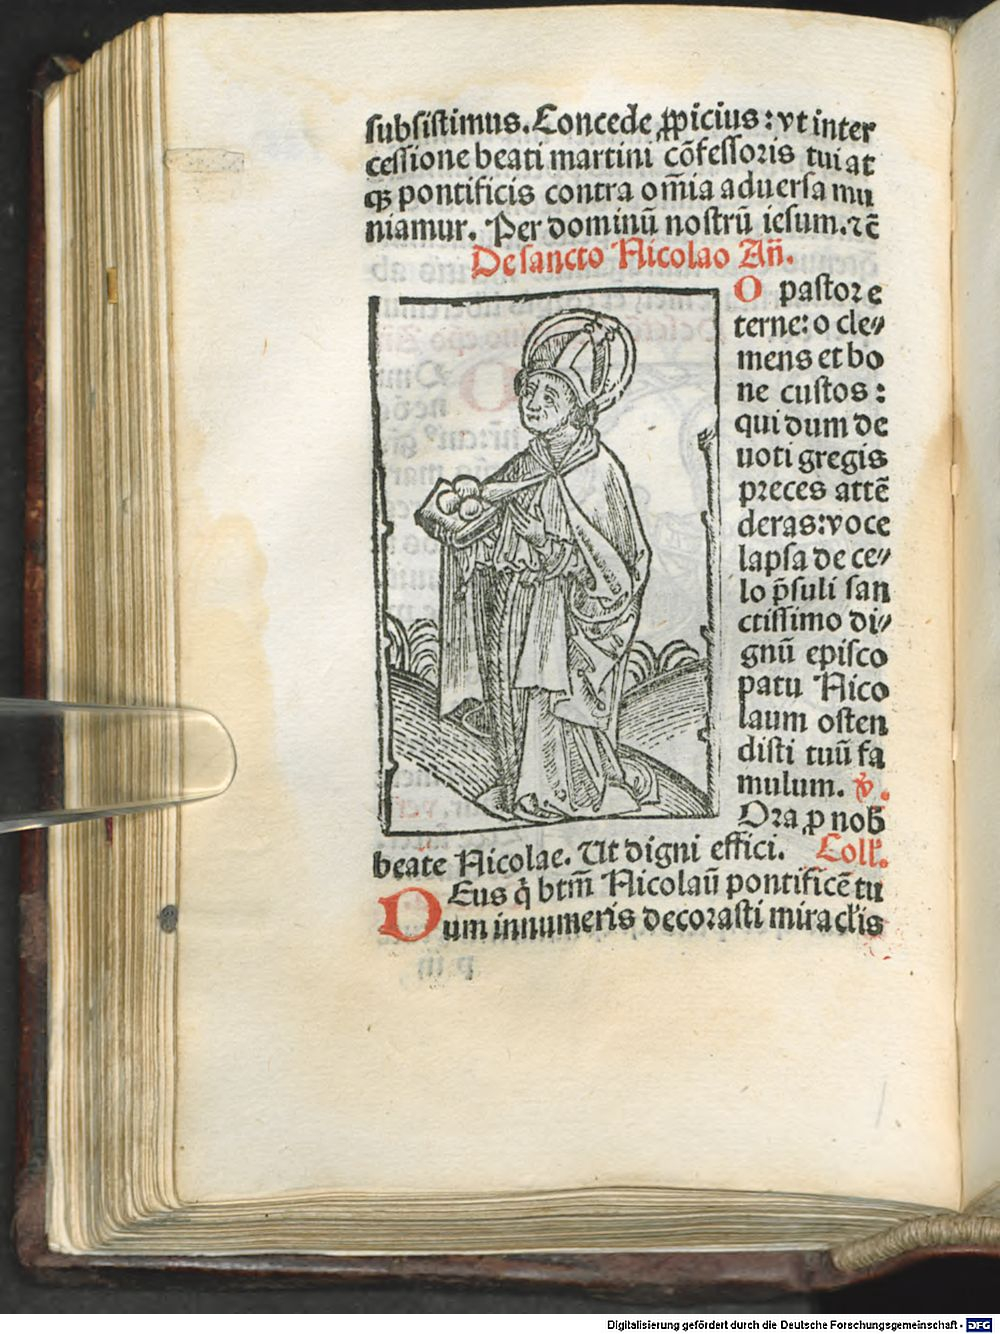 subsistimus. Concede ꝓpicius: vt inter
cessione beati martini cōfessoris tui at
qꝫ pontificis contra om̄ia aduersa mu
niamur. Per dominū nostrū iesum. ⁊c̄
De sancto Nicolao An̄.
O pastor e
terne: o cle⸗
mens et bo
ne custos:
qui dum de
uoti gregis
preces attē
deras: voce
lapsa de ce⸗
lo p̄suli san
ctissimo di⸗
gnū episco
patu Nico
laum osten
disti tuū fa
mulum. ℣.
Ora ꝓ nob̄
beate Nicolae. Ut digni effici. Coll'.
DEus q̇ btm̄ Nicolaū pontificē tu
um innumeris decorasti miraclis
Digitalisierung gefördert durch die Deutsche Forschungsgemeinschaft - DFG